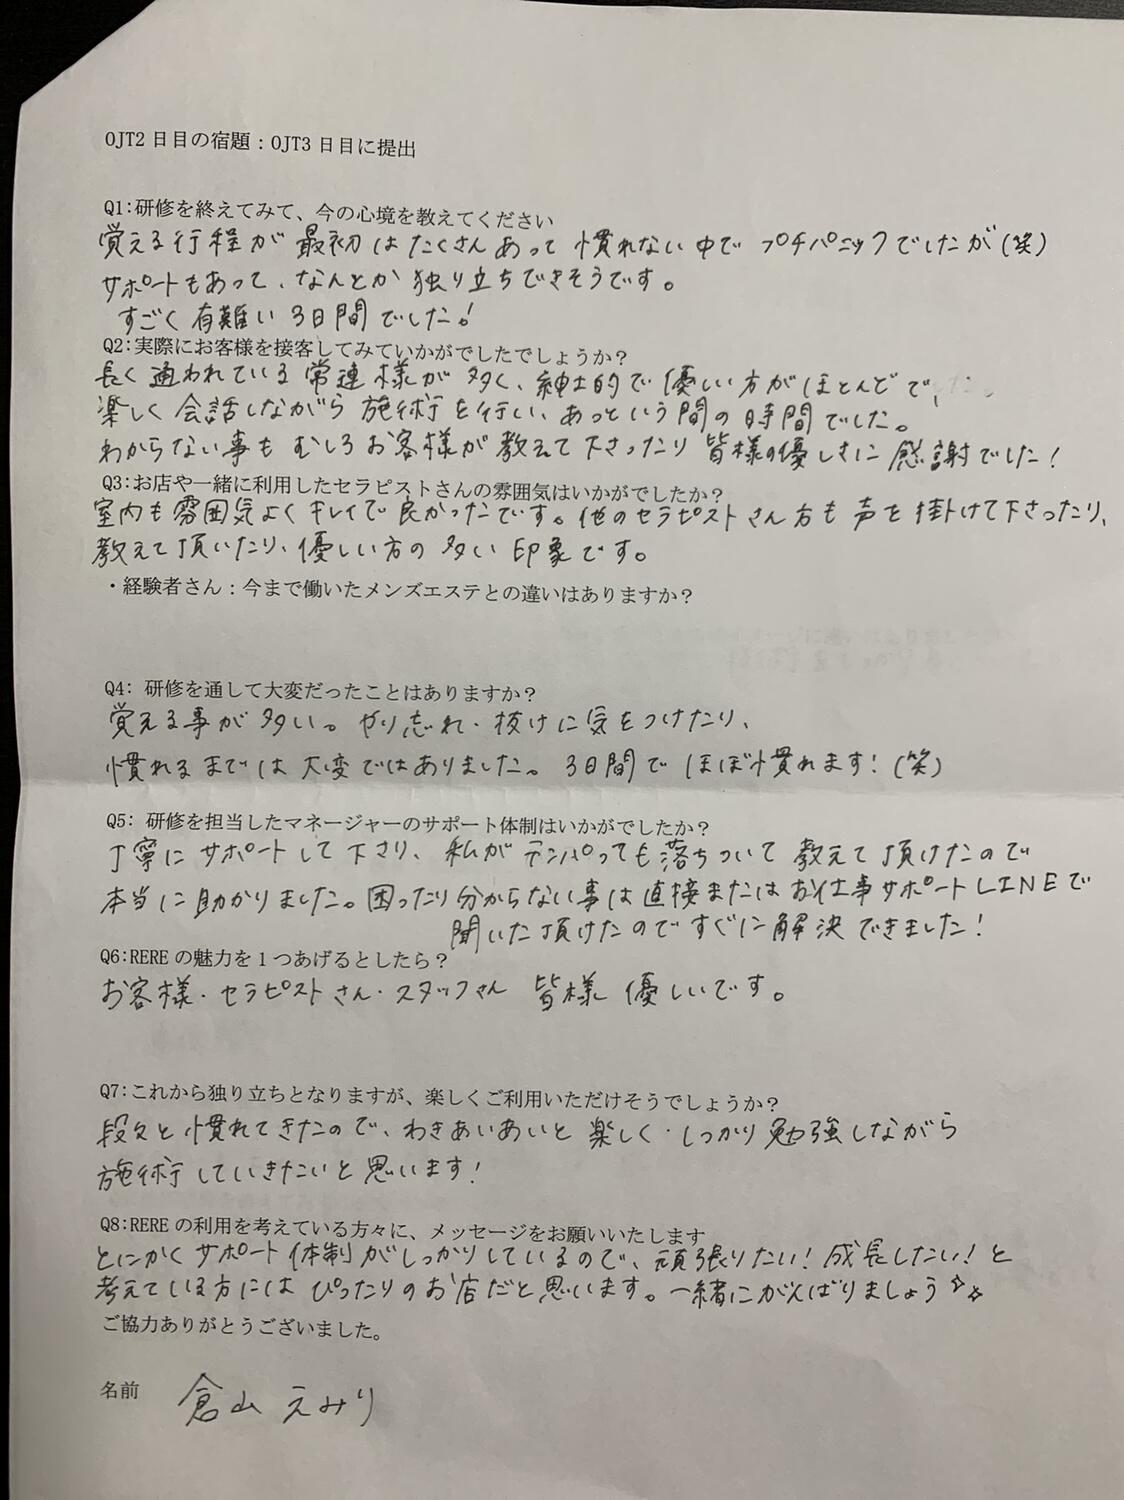 OJT2日目の宿題：OJT3日目に提出
Q1:研修を終えてみて、今の心境を教えてください
覚える行程が最初はたくさんあって慣れない中でプチパニックでしたが(笑)
サポートもあって、なんとか独り立ちできそうです。
すごく有難い3日間でした!
Q2:実際にお客様を接客してみていかがでしたでしょうか？
長く通われている常連様が多く、紳士的で優しい方がほとんどで、
楽しく会話しながら施術を行い、あっという間の時間でした。
わからない事もむしろお客様が教えて下さったり皆様の優しさに感謝でした!
Q3:お店や一緒に利用したセラピストさんの雰囲気はいかがでしたか？
室内も雰囲気よくキレイで良かったです。他のセラピストさん方も声を掛けて下さったり、
教えて頂いたり、優しい方の多い印象です。
・経験者さん：今まで働いたメンズエステとの違いはありますか？
Q4: 研修を通して大変だったことはありますか？
覚える事が多い。やり忘れ・抜けに気をつけたり、
慣れるまでは大変ではありました。3日間でほぼ慣れます!(笑)
Q5: 研修を担当したマネージャーのサポート体制はいかがでしたか？
丁寧にサポートして下さり、私がテンパっても落ちついて教えて頂けたので
本当に助かりました。困ったり分からない事は直接またはお仕事サポートLINEで
聞いた頂けたのですぐに解決できました!
Q6:REREの魅力を1つあげるとしたら？
お客様・セラピストさん・スタッフさん皆様優しいです。
Q7:これから独り立ちとなりますが、楽しくご利用いただけそうでしょうか？
段々と慣れてきたので、わきあいあいと楽しく・しっかり勉強しながら
施術していきたいと思います!
Q8:REREの利用を考えている方々に、メッセージをお願いいたします
とにかくサポート体制がしっかりしているので、頑張りたい!成長したい!と
考えている方にはぴったりのお店だと思います。一緒にがんばりましょう☆☆
ご協力ありがとうございました。
名前 倉山えみり